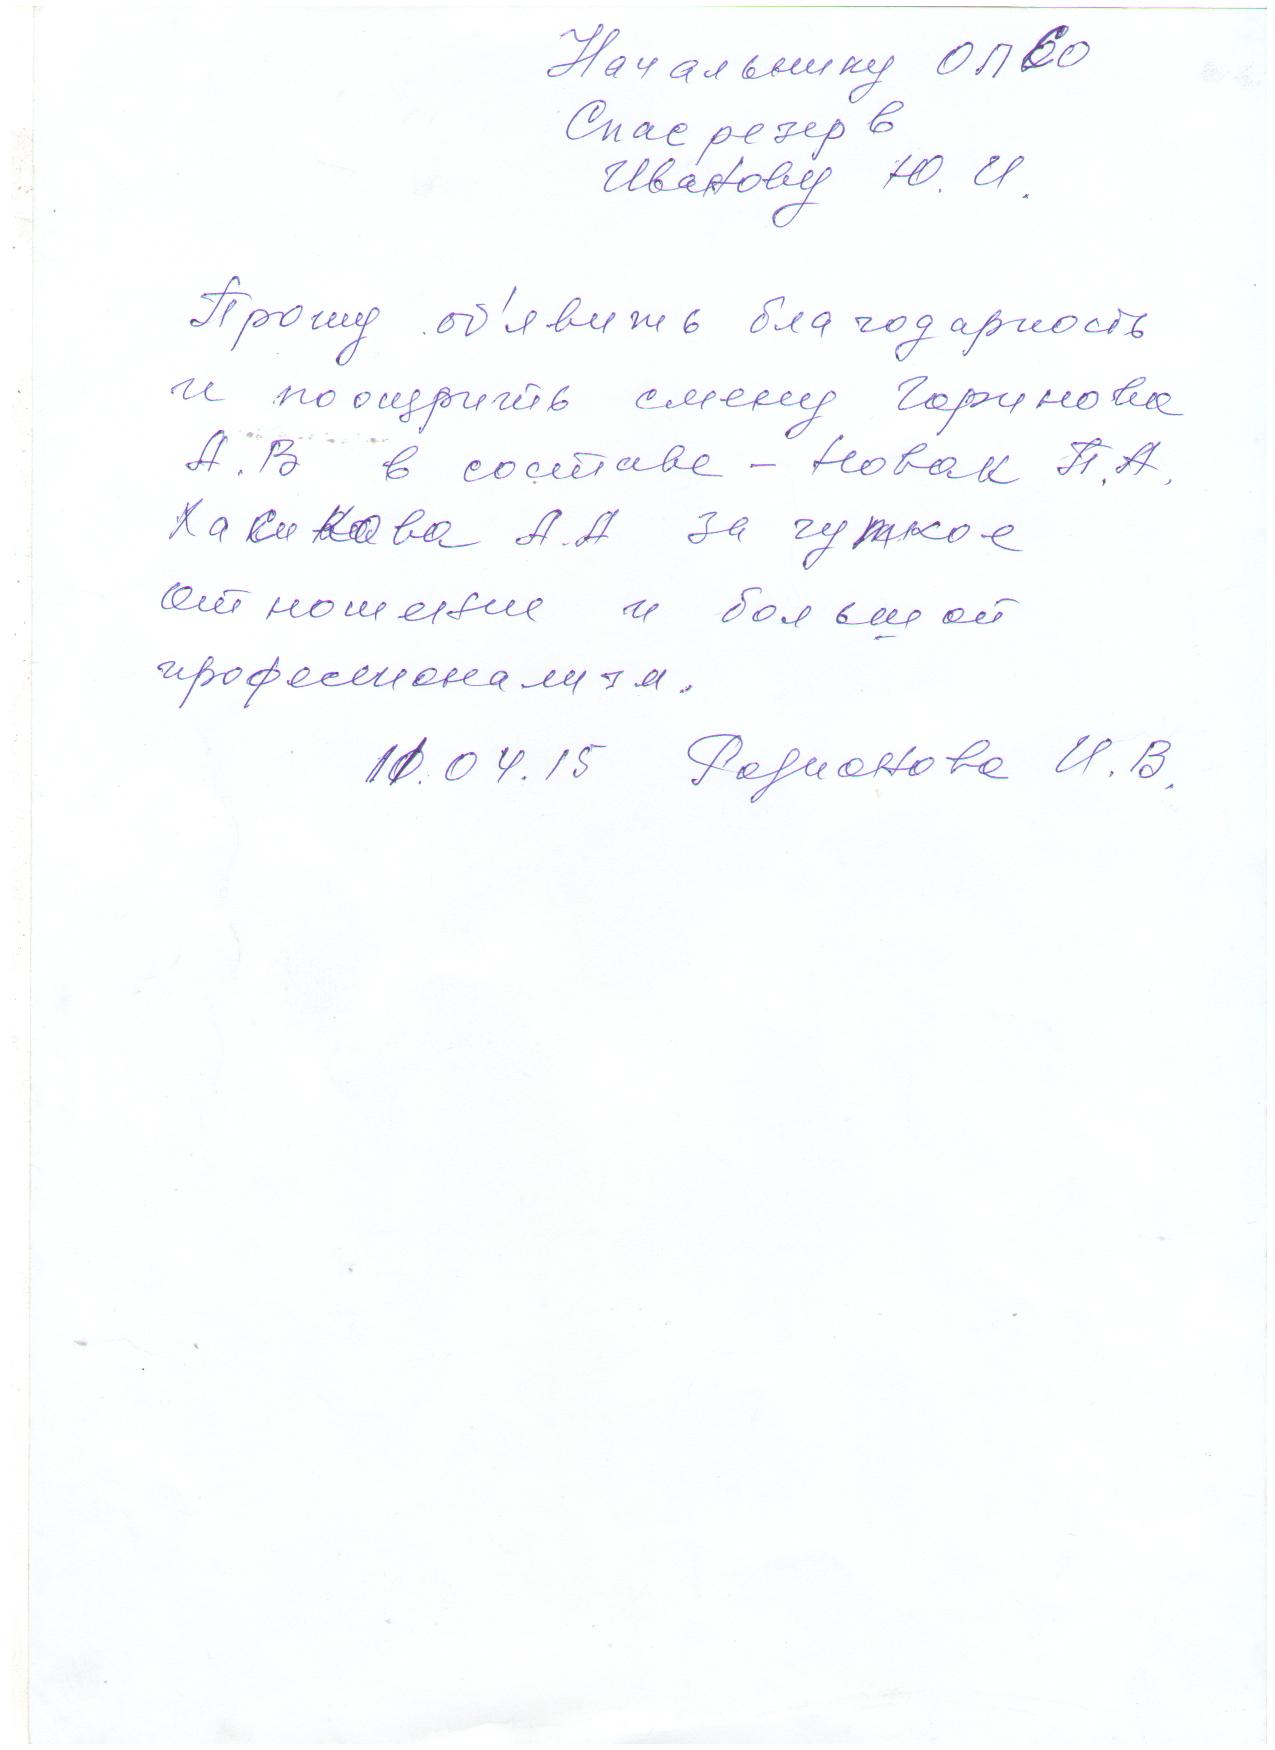 Начальнику ОПСО
Спасрезерв
Иванову Ю. И.
Прошу об'явить благодарность
и поощрить смену Горинова
А.В в составе - Новак П.А.
Хасикова А.А за чуткое
отношение и большой
професионализм.
11.04.15 Родионова И.В.